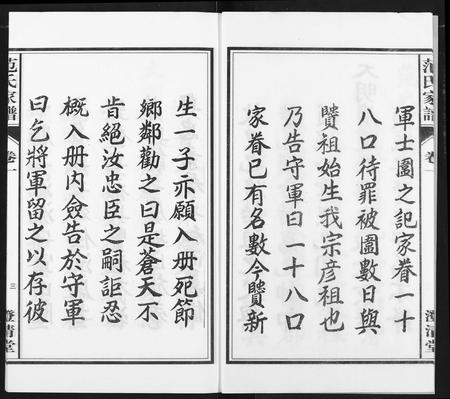 范氏家譜
卷一
澄清堂
軍士圍之記家眷一十
八口待罪被圍數日與
贒祖始生我宗彦祖也
乃告守軍曰一十八口
家眷已有名數今贒新
生一子亦願入册死節
鄉鄰勸之曰是蒼天不
肯絕汝忠臣之嗣詎忍
概入册内僉告於守軍
曰乞將軍留之以存彼
范氏家譜
卷一
三
澄清堂